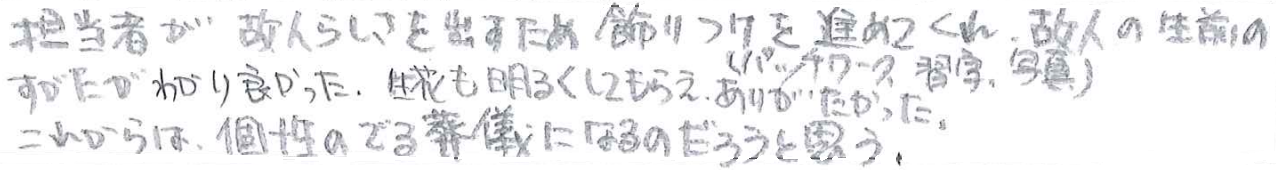 担当者が故人らしさを出すため飾りつけを進めてくれ、故人の生前の
すがたがわかり良かった。生花も明るくしてもらえ、ありがたかった。
(パッチワーク、習字、写真)
これからは、個性のでる葬儀になるのだろうと思う。